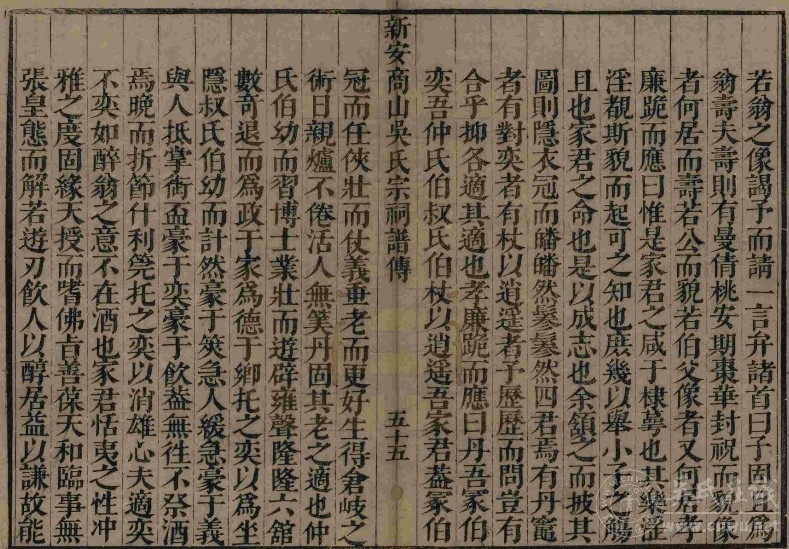 若翁之像謁予而請一言弁諸首曰子固且爲
翁壽夫壽則有曼倩桃安期棗華封祝而貌像
者何居而壽若公而貌若伯父像者又何居孝
廉跪而應曰惟是家君之咸于棣萼也其樂滛
淫覩斯貌而起可之知也庶幾以舉小子之觴
且也家君之命也是以成志也余頷之而披其
圖則隱衣冠而皤皤然鬖鬖然四君焉有丹竈
者有對奕者有杖以逍遥者予歷歷而問豈有
合乎抑各適其適也孝廉跪而應曰丹吾冢伯
奕吾仲氏伯叔氏伯杖以逍遥吾家君葢冢伯
新安商山吳氏宗祠譜傳
五十五
冠而任俠壯而仗義垂老而更好生得倉岐之
術日親爐不倦活人無筭丹固其老之適也仲
氏伯幼而習博士業壯而遊辟雍聲隆隆六舘
數竒退而爲政于家爲德于鄉托之奕以爲坐
隱叔氏伯幼而計然豪于筴急人緩急豪于義
與人抵掌銜盃豪于奕豪于飲葢無徃不祭酒
焉晚而折節什利筦托之奕以消雄心夫適奕
不奕如醉翁之意不在酒也家君恬夷之性冲
雅之度固緣天授而嗜佛㫖善葆天和臨事無
張皇態而解若遊刃飲人以醇居益以謙故能